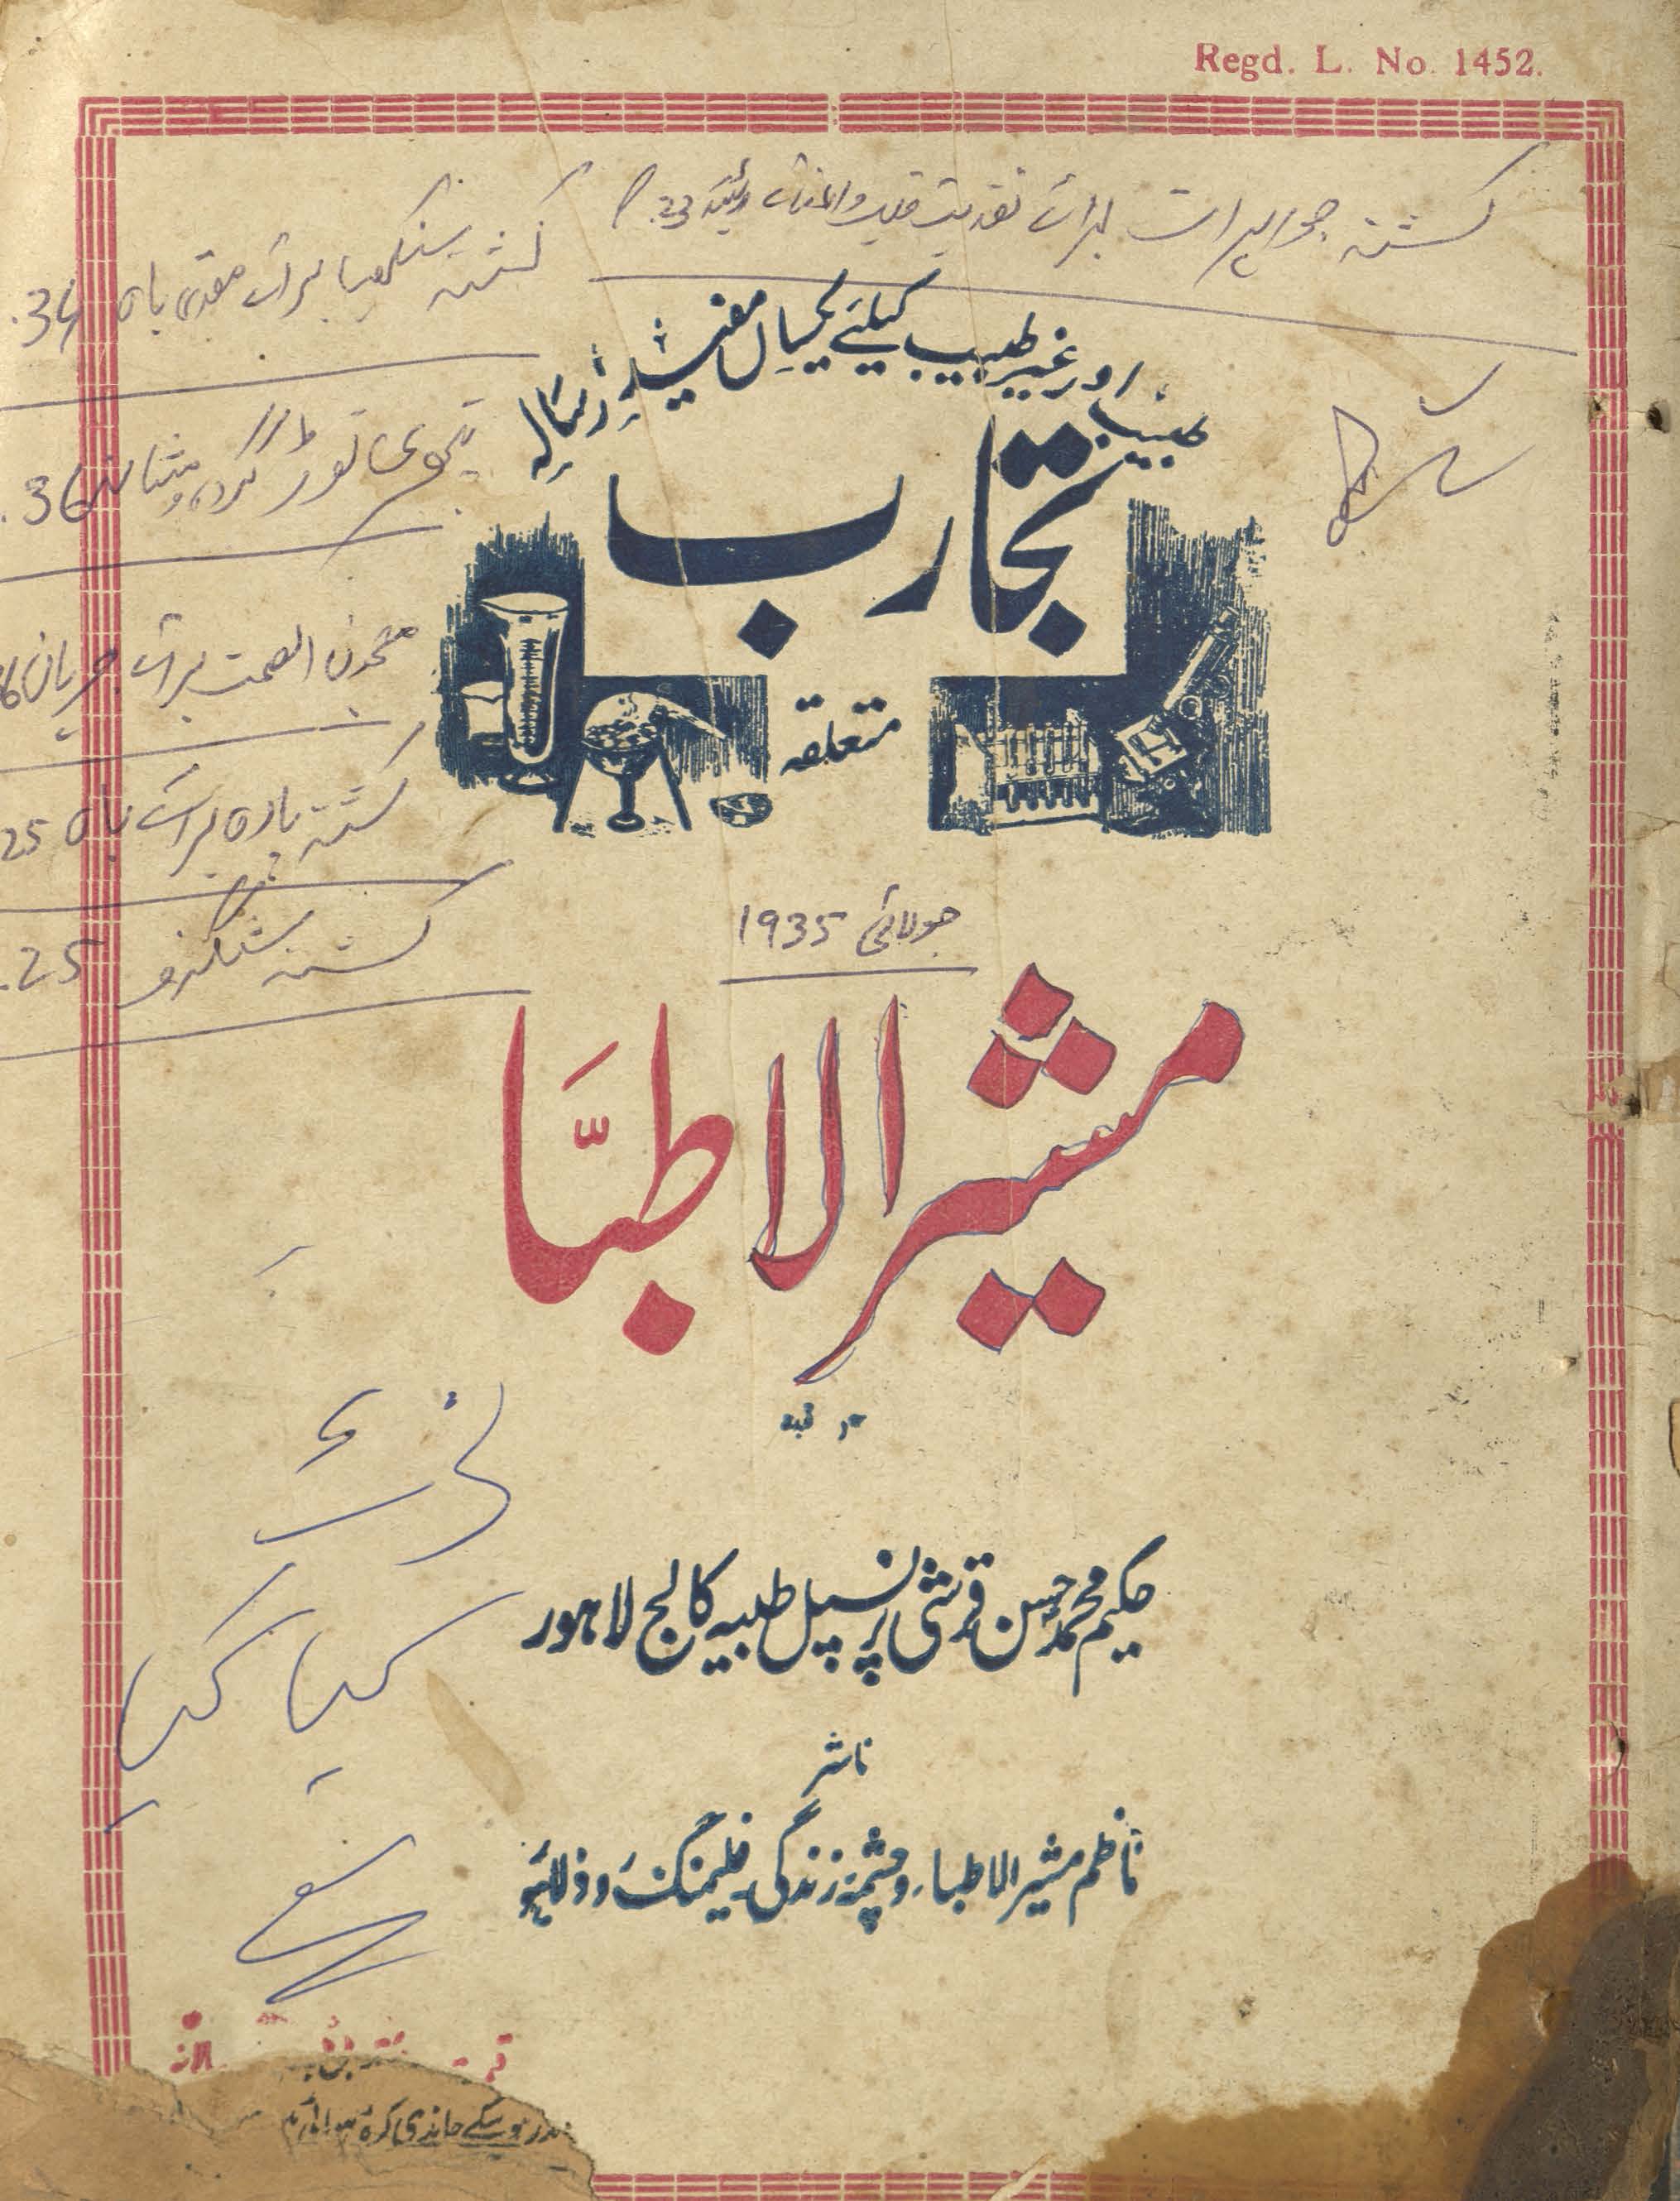 Regd. L. No. 1452.
کشتہ جواہرات برائے تقویت قلب و 23
کشتہ سنکھیا برائے مقوی باہ 34
طبیب اور غیر طبیب کیلئے یکساں مفید رسالہ
تجارب
36 گردہ و مثانہ
متعلقہ
معجون الصحت برائے جریان
کشتہ پارہ برائے باہ 25
جولائی 1935
کشتہ شنگرف 25
مشیر الاطبّا
مرتبہ
حکیم محمد حسن قرشی پرنسپل طبیہ کالج لاہور
کیا گیا
ناشر
ناظم مشیر الاطباء و چشمۂ زندگی فلیمنگ روڈ لاہور